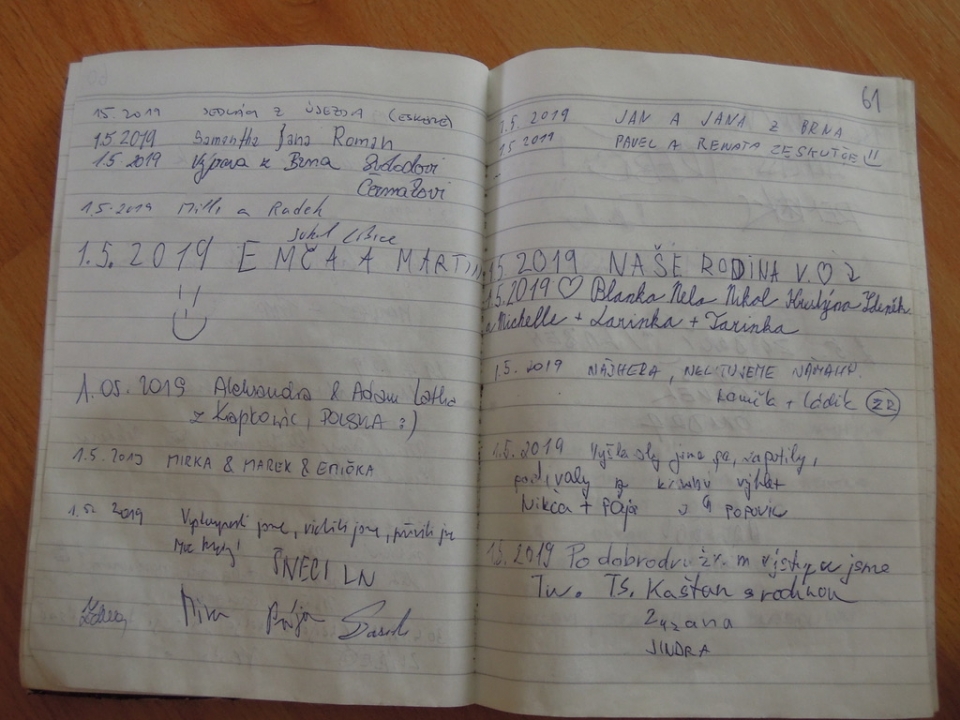 15.2019 Z ÚJEZDA
1.5.2019 Samantha Jana Roman
1.5 2019 Výprava z Brna Svobodovi
Čermákovi
1.5.2019 Milli a Radek
1.5.2019 EMČA A MARTIN
1.05.2019 Aleksandra & Adam
z POLSKA :)
1.5.2019 MIRKA & MAREK & EMIČKA
1.5. 2019 jsme, viděli jsme,
ŠNECI LN
Mira Pája
61
1.5.2019 JAN A JANA Z BRNA
1.5 2019 PAVEL A RENATA ZE SKUTČE!!
1.5 2019 NAŠE RODINA V. ♡
1.5.2019 ♡ Blanka Nela Nikol Kristýna Zdeněk
a Michelle + Larinka + Tarinka
1.5. 2019 NÁDHERA, NELITUJEME NÁMAHY.
+ Ládik ZR
1.5.2019 Vyšlapaly jsme se, zapotily,
podívaly na krásný výhled
Nikča + Pája
1.5.2019 Po dobrodružném výstupu jsme
Tu. TS. Kaštan s rodinou
Zuzana
JINDRA